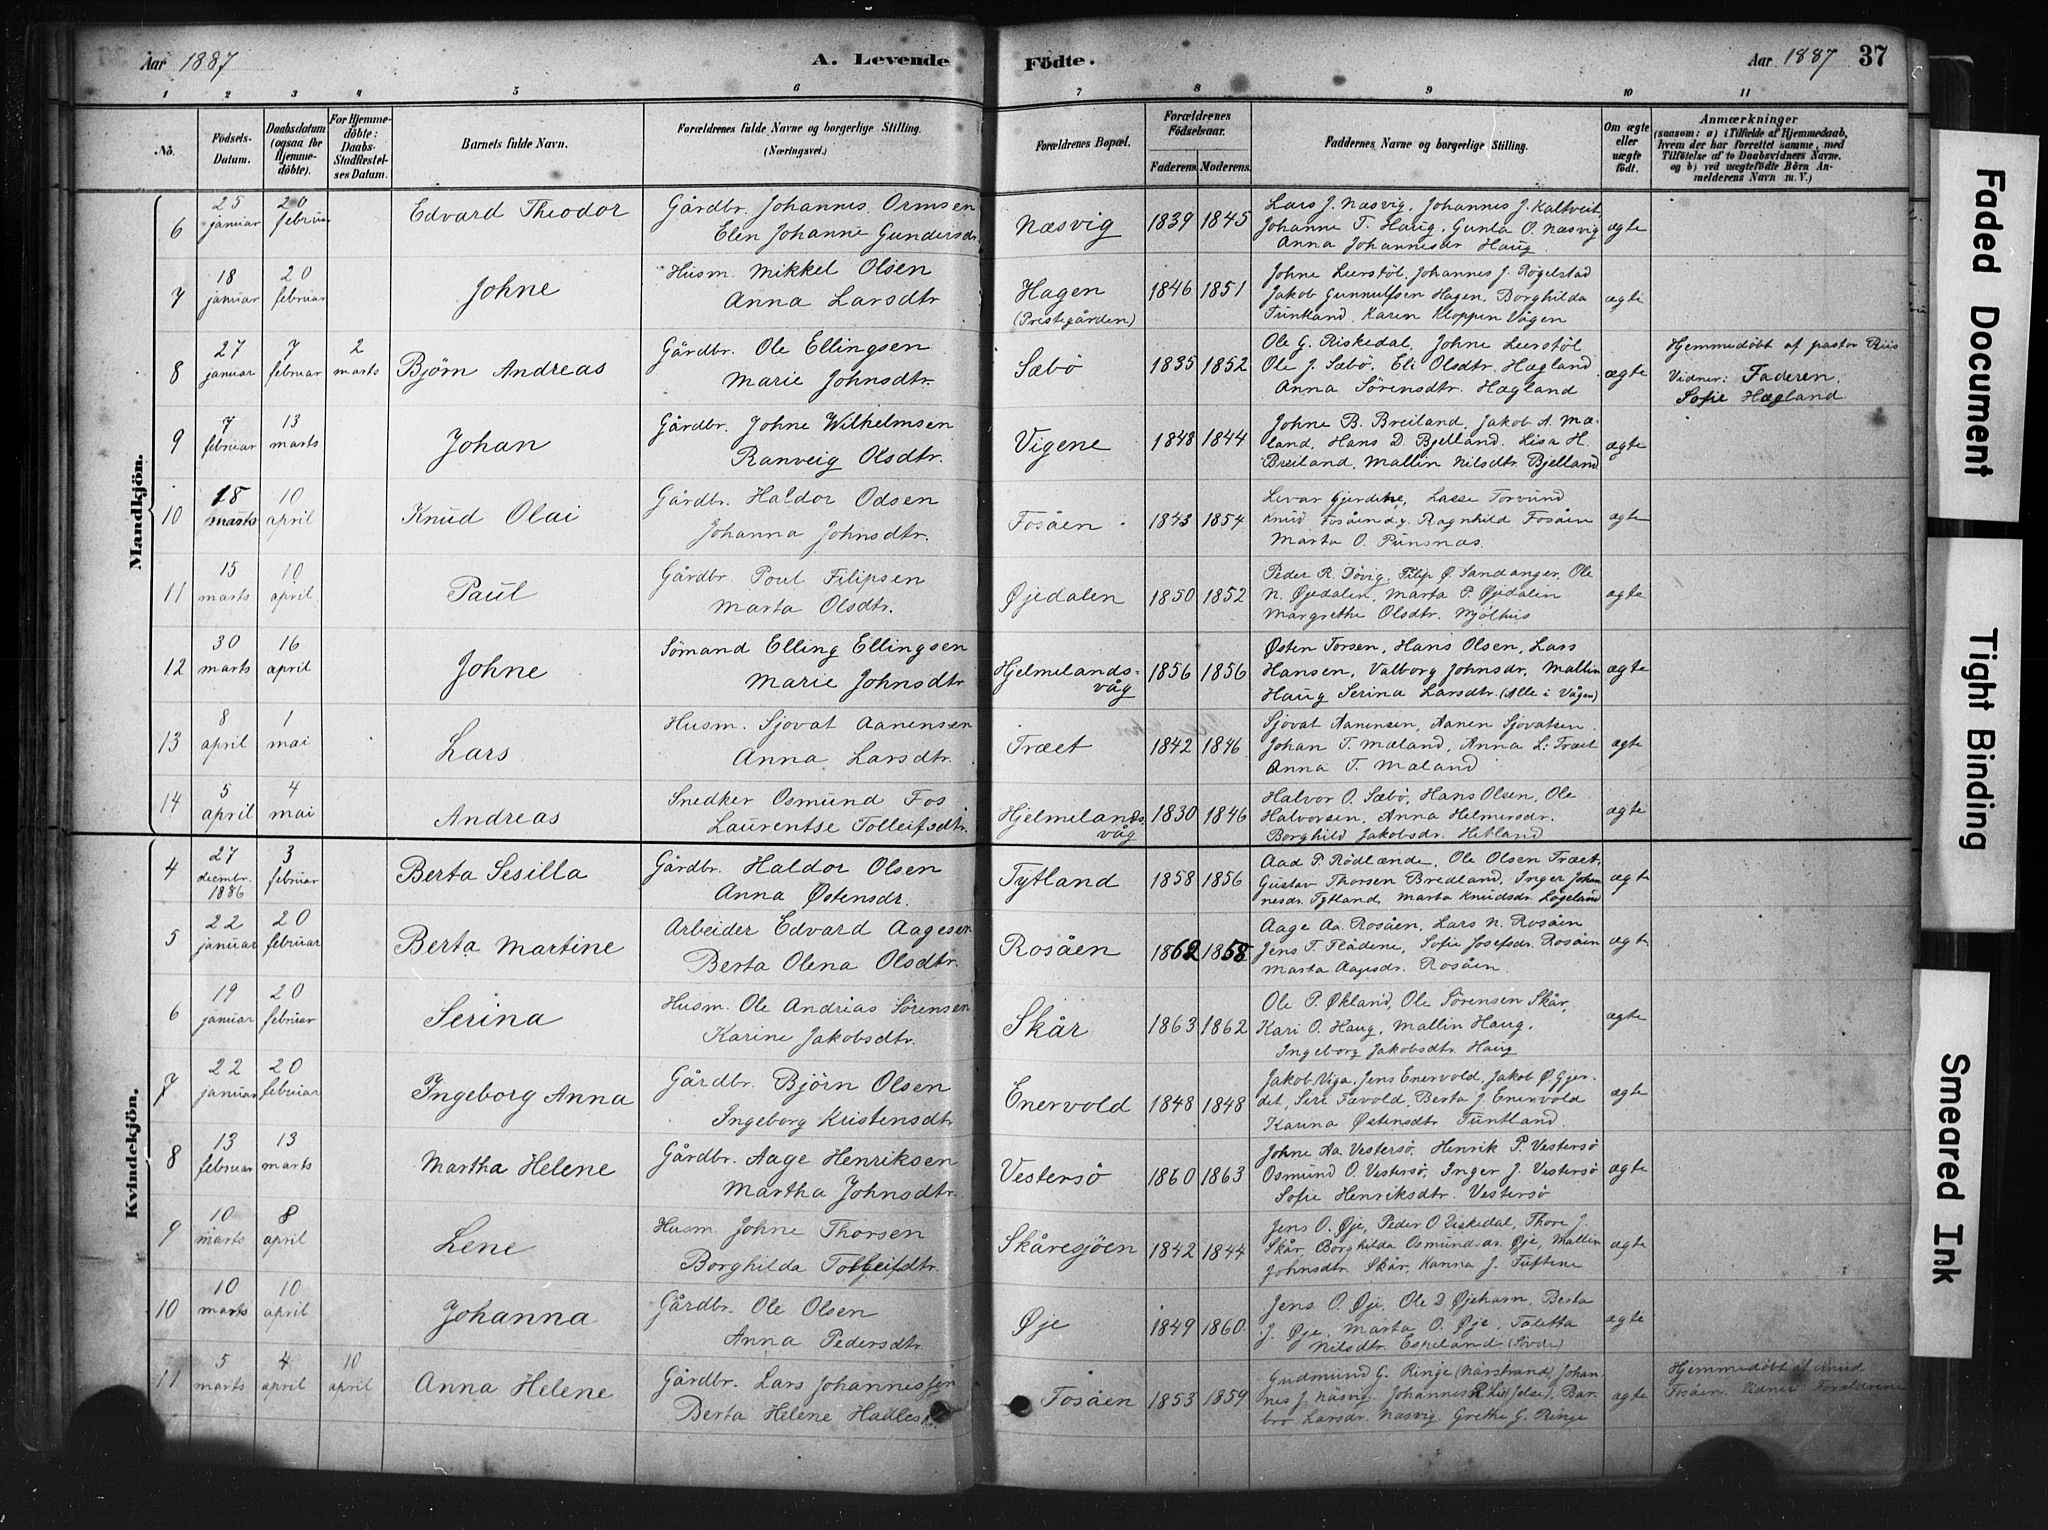 Aar 1887
A. Levende
Födte.
Aar 1887 37
1 2 3 4 5 6 7 8 9 10 11
No.
Födsels-
Datum.
Daabsdatum
(ogsaa for
Hjemme-
döbte).
For Hjemme-
döbte:
Daabs-
Stadfæstel-
ses Datum.
Barnets fulde Navn.
Forældrenes fulde Navne og borgerlige Stilling.
(Næringsvei.)
Forældrenes Bopæl.
Forældrenes
Födselsaar.
Faderens. Moderens.
Faddernes Navne og borgerlige Stilling.
Om ægte
eller
uægte
födt.
Anmærkninger
(saasom: a) i Tilfælde af Hjemmedaab,
hvem der har forrettet samme, med
Tilföielse af to Daabsvidners Navne.
og b) ved uægtefödte Börn An-
melderens Navn m. V.)
Mandkjön.
6 25 januar 20 februar Edvard Theodor Gårdbr. Johannes Ormsen
Elen Johanne Gundersdr.
Næsvig 1839 1845 Lars J. Næsvig, Johannes J. Kaltveit,
Johanne T. Haug, Gunla O. Næsvig
Anna Johannesdr Haug
ægte
7 18 januar 20 februar Johne Husm. Mikkel Olsen
Anna Larsdtr
Hagen
(Prestegården)
1846 1851 Johne Leerstöl, Johannes J. Rögelstad
Jakob Gunnulfsen Hagen, Borghilda
Tuntland, Karen Kloppen Vågen
ægte
8 27 januar 7 februar 2 marts Björn Andreas Gårdbr. Ole Ellingsen
Marie Johnsdtr.
Sæbö 1835 1852 Ole G. Riskedal, Johne Leerstöl
Ole J. Sæbö, Eli Olsdtr. Hægland
Anna Sörensdtr. Hægland
ægte
Hjemmedöbt af pastor Riis
Vidner: Faderen,
Sofie Hægland
9 7 februar 13 marts Johan Gårdbr. Johne Wilhelmsen
Ranveig Olsdtr.
Vigene 1848 1844 Johne B. Breiland, Jakob A. Mæ-
land, Hans D Bjelland. Lisa H.
Breiland, Mallin Nilsdtr. Bjelland
ægte
10 18 marts 10 april Knud Olai Gårdbr. Haldor Odsen
Johanna Johnsdtr.
Fosåen 1843 1854 Levar Gjerdene, Lasse Torvund
Knud Fosåen d.y. Ragnhild Fosåen
Marta O. Pünsnæs.
ægte
11 15 marts 10 april Paul Gårdbr. Poul Filipsen
Marta Olsdtr.
Øjedalen 1850 1852 Peder R. Dövig, Filip Ø. Sandanger, Ole
N. Øjedalen, Marta P. Øjedalin
Margrethe Olsdtr. Mjölhus
ægte
12 30 marts 16 april Johne Sömand Elling Ellingsen
Marie Johnsdtr.
Hjelmelands-
våg
1856 1856 Østen Torsen, Hans Olsen, Lars
Hansen, Valborg Johnsdr, Mallin
Haug Serina Larsdtr. (Alle i Vågen)
ægte
13 8 april 1 mai Lars Husm. Sjovat Aanensen
Anna Larsdtr.
Træet 1842 1846 Sjovat Aanensen, Aanen Sjovatsen
Johan T. Mæland, Anna L. Træet
Anna T. Mæland
ægte
14 5 april 4 mai Andreas Snedker Osmund Fos
Laurentse Tolleifsdtr.
Hjelmelands-
våg
1830 1846 Halvor O. Sæbö, Hans Olsen, Ole
Halvorsen, Anna Helmersdr.
Borghild Jakobsdr. Hetland
ægte
Kvindekjön.
4 27 decmbr. 1886 3 februar Berta Sesilla Gårdbr. Haldor Olsen
Anna Østensdr.
Tytland 1858 1856 Aad P. Rödlænde, Ole Olsen Træet,
Gustav Thorsen Bredland, Inger Johan
nesdr. Tytland, Marta Knudsdr. Lögeland
ægte
5 22 januar 20 februar Berta Martine Arbeider Edvard Aagesen
Berta Olena Olsdtr.
Rosåen 1862 1858 Aage Aa. Rosåen, Lars N. Rosåen
Jens T. Flådene, Sofie Josefsdr. Rosåen
Marta Aagesdr. Rosåen
ægte
6 19 januar 20 februar Serina Husm. Ole Andreas Sörensen
Karine Jakobsdtr.
Skår 1863 1862 Ole P. Økland, Ole Sörensen Skår,
Kari O. Haug, Mallin Haug,
Ingeborg Jakobsdtr. Haug
ægte
7 22 januar 20 februar Ingeborg Anna Gårdbr. Björn Olsen
Ingeborg Kristensdtr
Enervold 1848 1848 Jakob Viga, Jens Enervold, Jakob Ø. Gjer-
det, Siri Favold, Berta J. Enervold
Karina Østensdtr Tuntland.
ægte
8 13 februar 13 marts Martha Helene Gårdbr. Aage Henriksen
Martha Johnsdtr.
Vestersö 1860 1863 Johne Aa. Vestersö, Henrik P. Vestersö
Osmund O. Vestersö, Inger J. Vestersö
Sofie Henriksdtr. Vestersö
ægte
9 10 marts 8 april Lene Husm. Johne Thorsen
Borghilda Tolleifdtr.
Skåresjöen 1842 1844 Jens O. Øje, Peder O Riskedal, Thore J.
Skår, Borghilda Osmundsdr. Øje, Mallin
Johnsdtr. Skår, Karina J. Tüftene
ægte
10 10 marts 10 april Johanna Gårdbr. Ole Olsen
Anna Pedersdtr.
Øje 1849 1860 Jens O. Øje, Ole D Øjeham, Berta
J. Øje, Marta O. Øje, Taletta
Nilsdtr. Espeland (Sovde)
ægte
11 5 marts 4 april 10 april Anna Helene Gårdbr. Lars Johannessen
Berta Helene Hadles
Fosåen 1853 1859 Gudmund G. Ringe (Nærstrand), Johan
nes J. Næsvig, Johannes R. Lid (Jelse), Bar-
bro Larsdr. Næsvig Grethe G. Ringe
ægte
Hjemmedöbt af Knud
Fosåen. Vidner Forældrene
Faded Document
Tight Binding
Smeared Ink